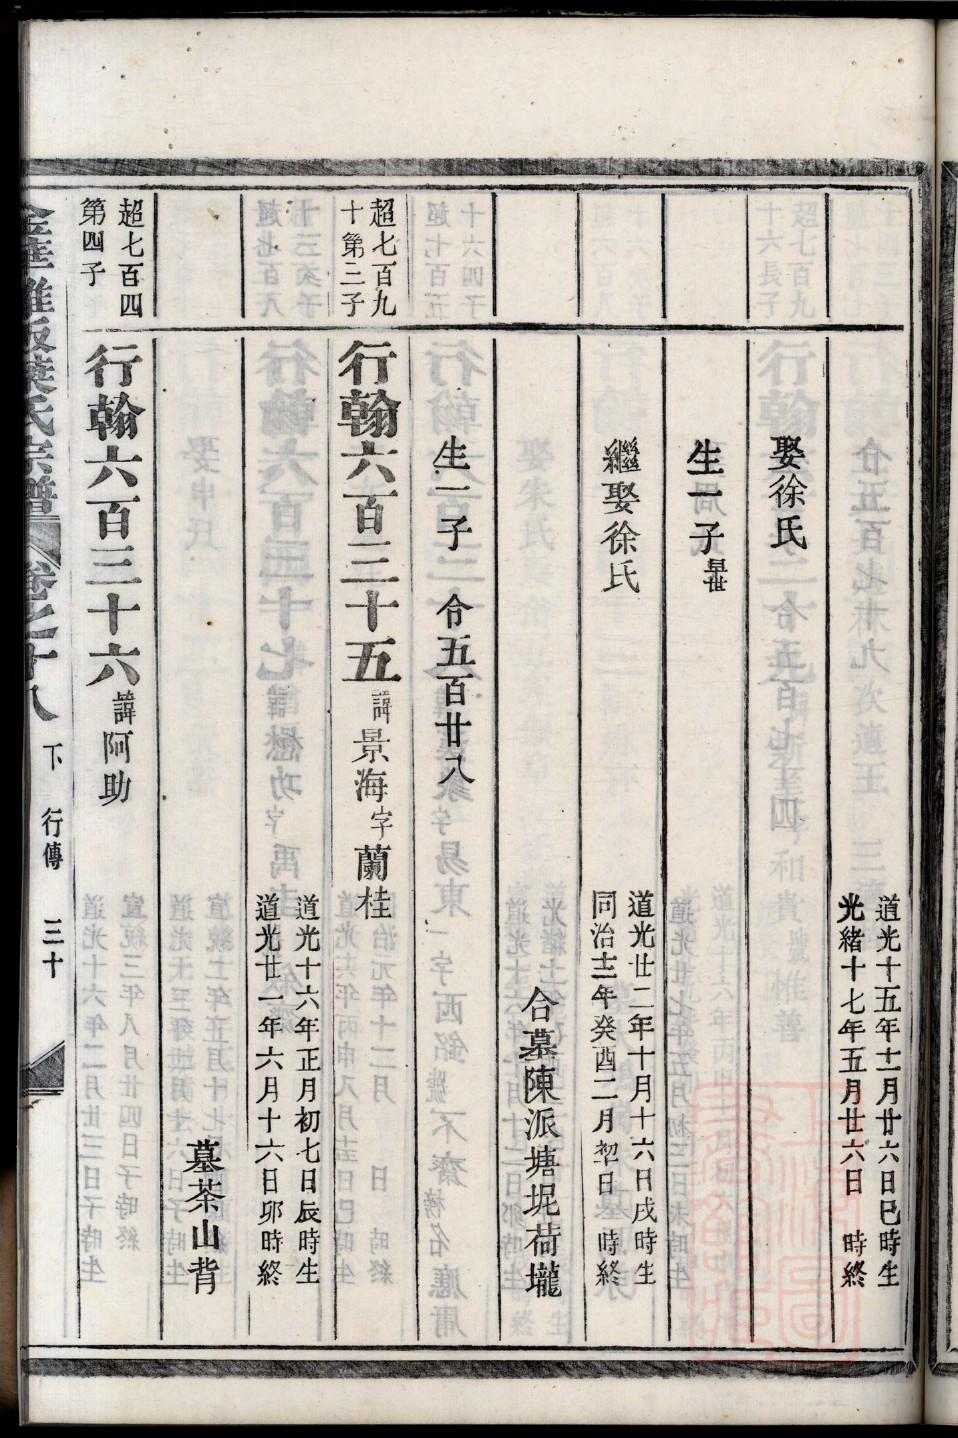 道光十五年十一月廿六日巳時生
光緒十七年五月廿六日　時終
娶徐氏
生一子
道光廿二年十月十六日戌時生
同治十二年癸酉二月初日　時終
繼娶徐氏
合墓陳派塘坭荷壠
生一子　令五百廿八
超七百九
十第三子
行翰六百三十五　諱景海字蘭桂
道光十六年正月初七日辰時生
道光廿一年六月十六日卯時終
墓茶山背
超七百四
第四子
行翰六百三十六　諱阿助
葉氏宗譜　卷之十八　下　行傳　三十